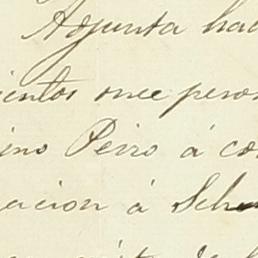 Adjunta hac
ientos once pesos
ino Peiro á co
acion á Sch